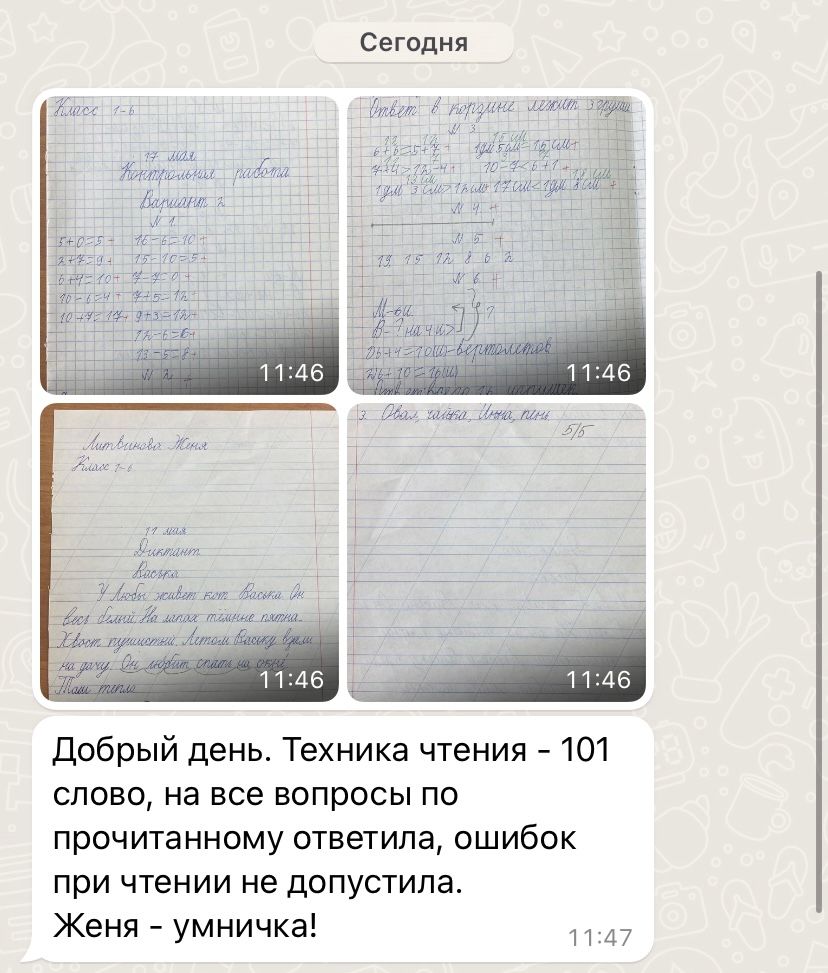 Сегодня
Класс 1-б
17 мая
Контрольная работа
Вариант 2
N 1.
5+0=5+ 16-6=10+
2+7=9+ 15-10=5+
6+4=10+ 7-7=0+
10-6=4+ 7+5=12+
10+7=17+ 9+3=12+
12-6=6+
13-5=8+
N 2 +
11:46
Ответ в корзине лежит 3 груши
N 3
6+6=5+7+ 1дм 5см=15 см+
7+4>12-4+ 10-7<6+1+
1дм 3см>12см+ 17см<1дм 8см+
N 4 +
N 5 +
13 15 12 8 6 2
N 6 +
М-6и
В-?на4и>
1)6+4=10(и)-вертолетов
2)6+10=16(и)
11:46
Литвинова Женя
Класс 1-б
17 мая
Диктант
Васька
У Любы живет кот Васька. Он
весь белый. На лапах тёмные пятна.
Хвост пушистый. Летом Ваську взяли
на дачу. Он любит спать на окне
Там тепло
11:46
3. Овал, чайка, Инна, пень
5/5
11:46
Добрый день. Техника чтения - 101
слово, на все вопросы по
прочитанному ответила, ошибок
при чтении не допустила.
Женя - умничка!
11:47